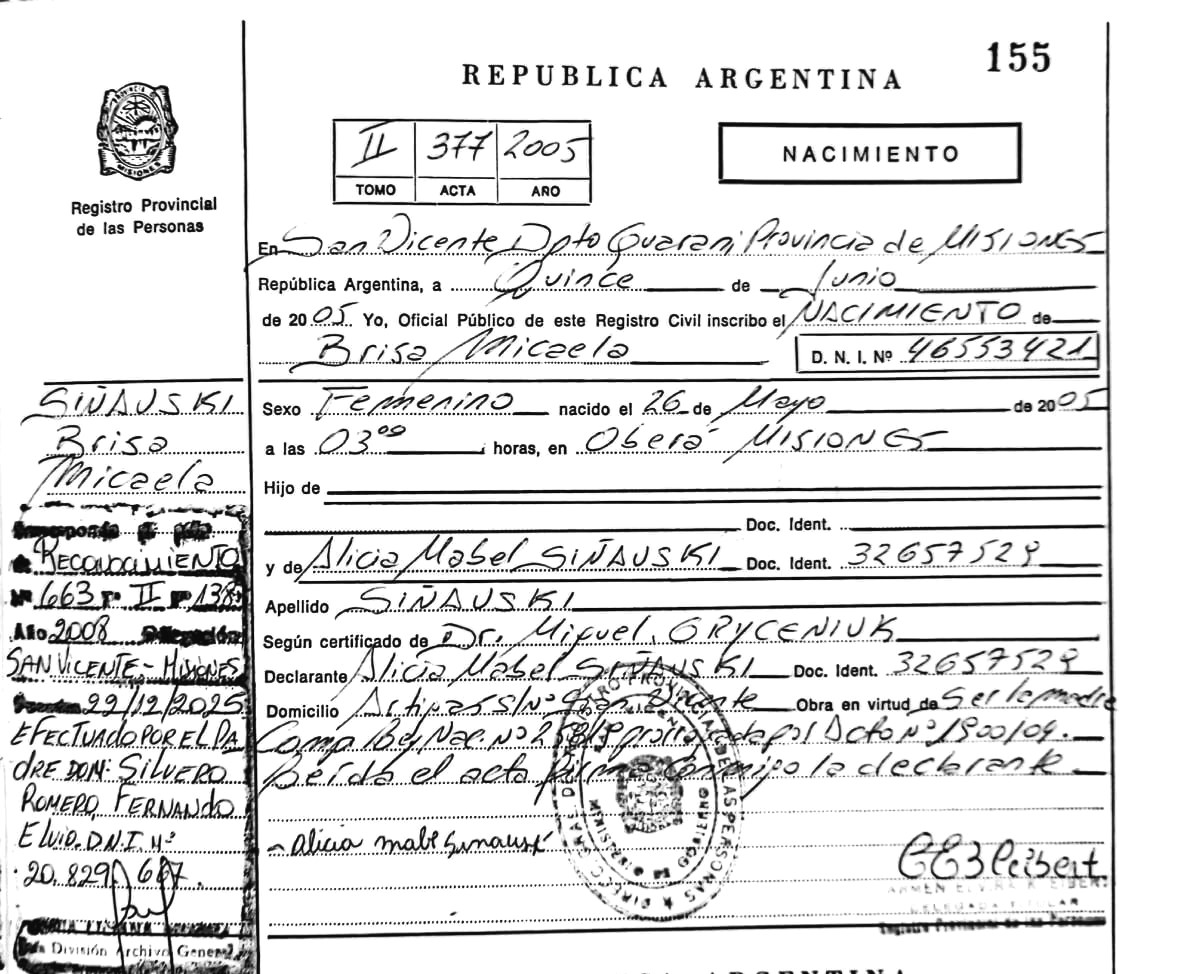 155
REPUBLICA ARGENTINA
PROVINCIA DE
MISIONES
Registro Provincial
de las Personas
II 377 2005
TOMO ACTA AÑO
NACIMIENTO
En San Vicente Dpto Guarani Provincia de MISIONES
República Argentina, a Quince de Junio
de 2005. Yo, Oficial Público de este Registro Civil inscribo el NACIMIENTO de
Brisa Micaela D. N. I. Nº 46553421
Sexo Femenino nacido el 26 de Mayo de 2005
a las 03⁰⁰ horas, en Oberá MISIONES
Hijo de
Doc. Ident.
y de Alicia Mabel SIÑAUSKI Doc. Ident. 32657529
Apellido SIÑAUSKI
Según certificado de Dr. Miguel. GRYCENIUK
Declarante Alicia Mabel SIÑAUSKI Doc. Ident. 32657529
Domicilio Artigas S/Nº San Vicente Obra en virtud de Ser la madre
Nac. Nº por Dcto Nº 1900/04.
Leída el acta firma conmigo la declarante
SIÑAUSKI
Brisa
Micaela
Corresponde
RECONOCIMIENTO
Nº 663 Tº II Fº 138
Año 2008 Delegación
SAN VICENTE - MISIONES
22/12/2025
EFECTUADO POR EL PA
DRE DON: SILVERO
ROMERO, FERNANDO
ELVIO. D.N.I. Nº
20.829.667.
División Archivo General
alicia mabel
DELEGADA TITULAR
Registro Provincial de las Personas
ARGENTINA